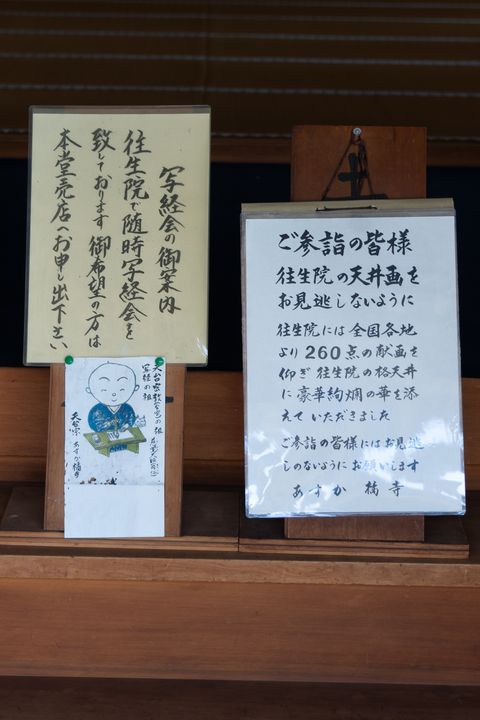 写経会の御案内
往生院で随時写経会を
致しております 御希望の方は
本堂売店へお申し出下さい
写経の祖
天台宗 あすか橘寺
ご参詣の皆様
往生院の天井画を
お見逃しないように
往生院には全国各地
より260点の献画を
仰ぎ 往生院の格天井
に豪華絢爛の華を添
えていただきました
ご参詣の皆様にはお見逃
しのないようにお願いします
あすか 橘寺